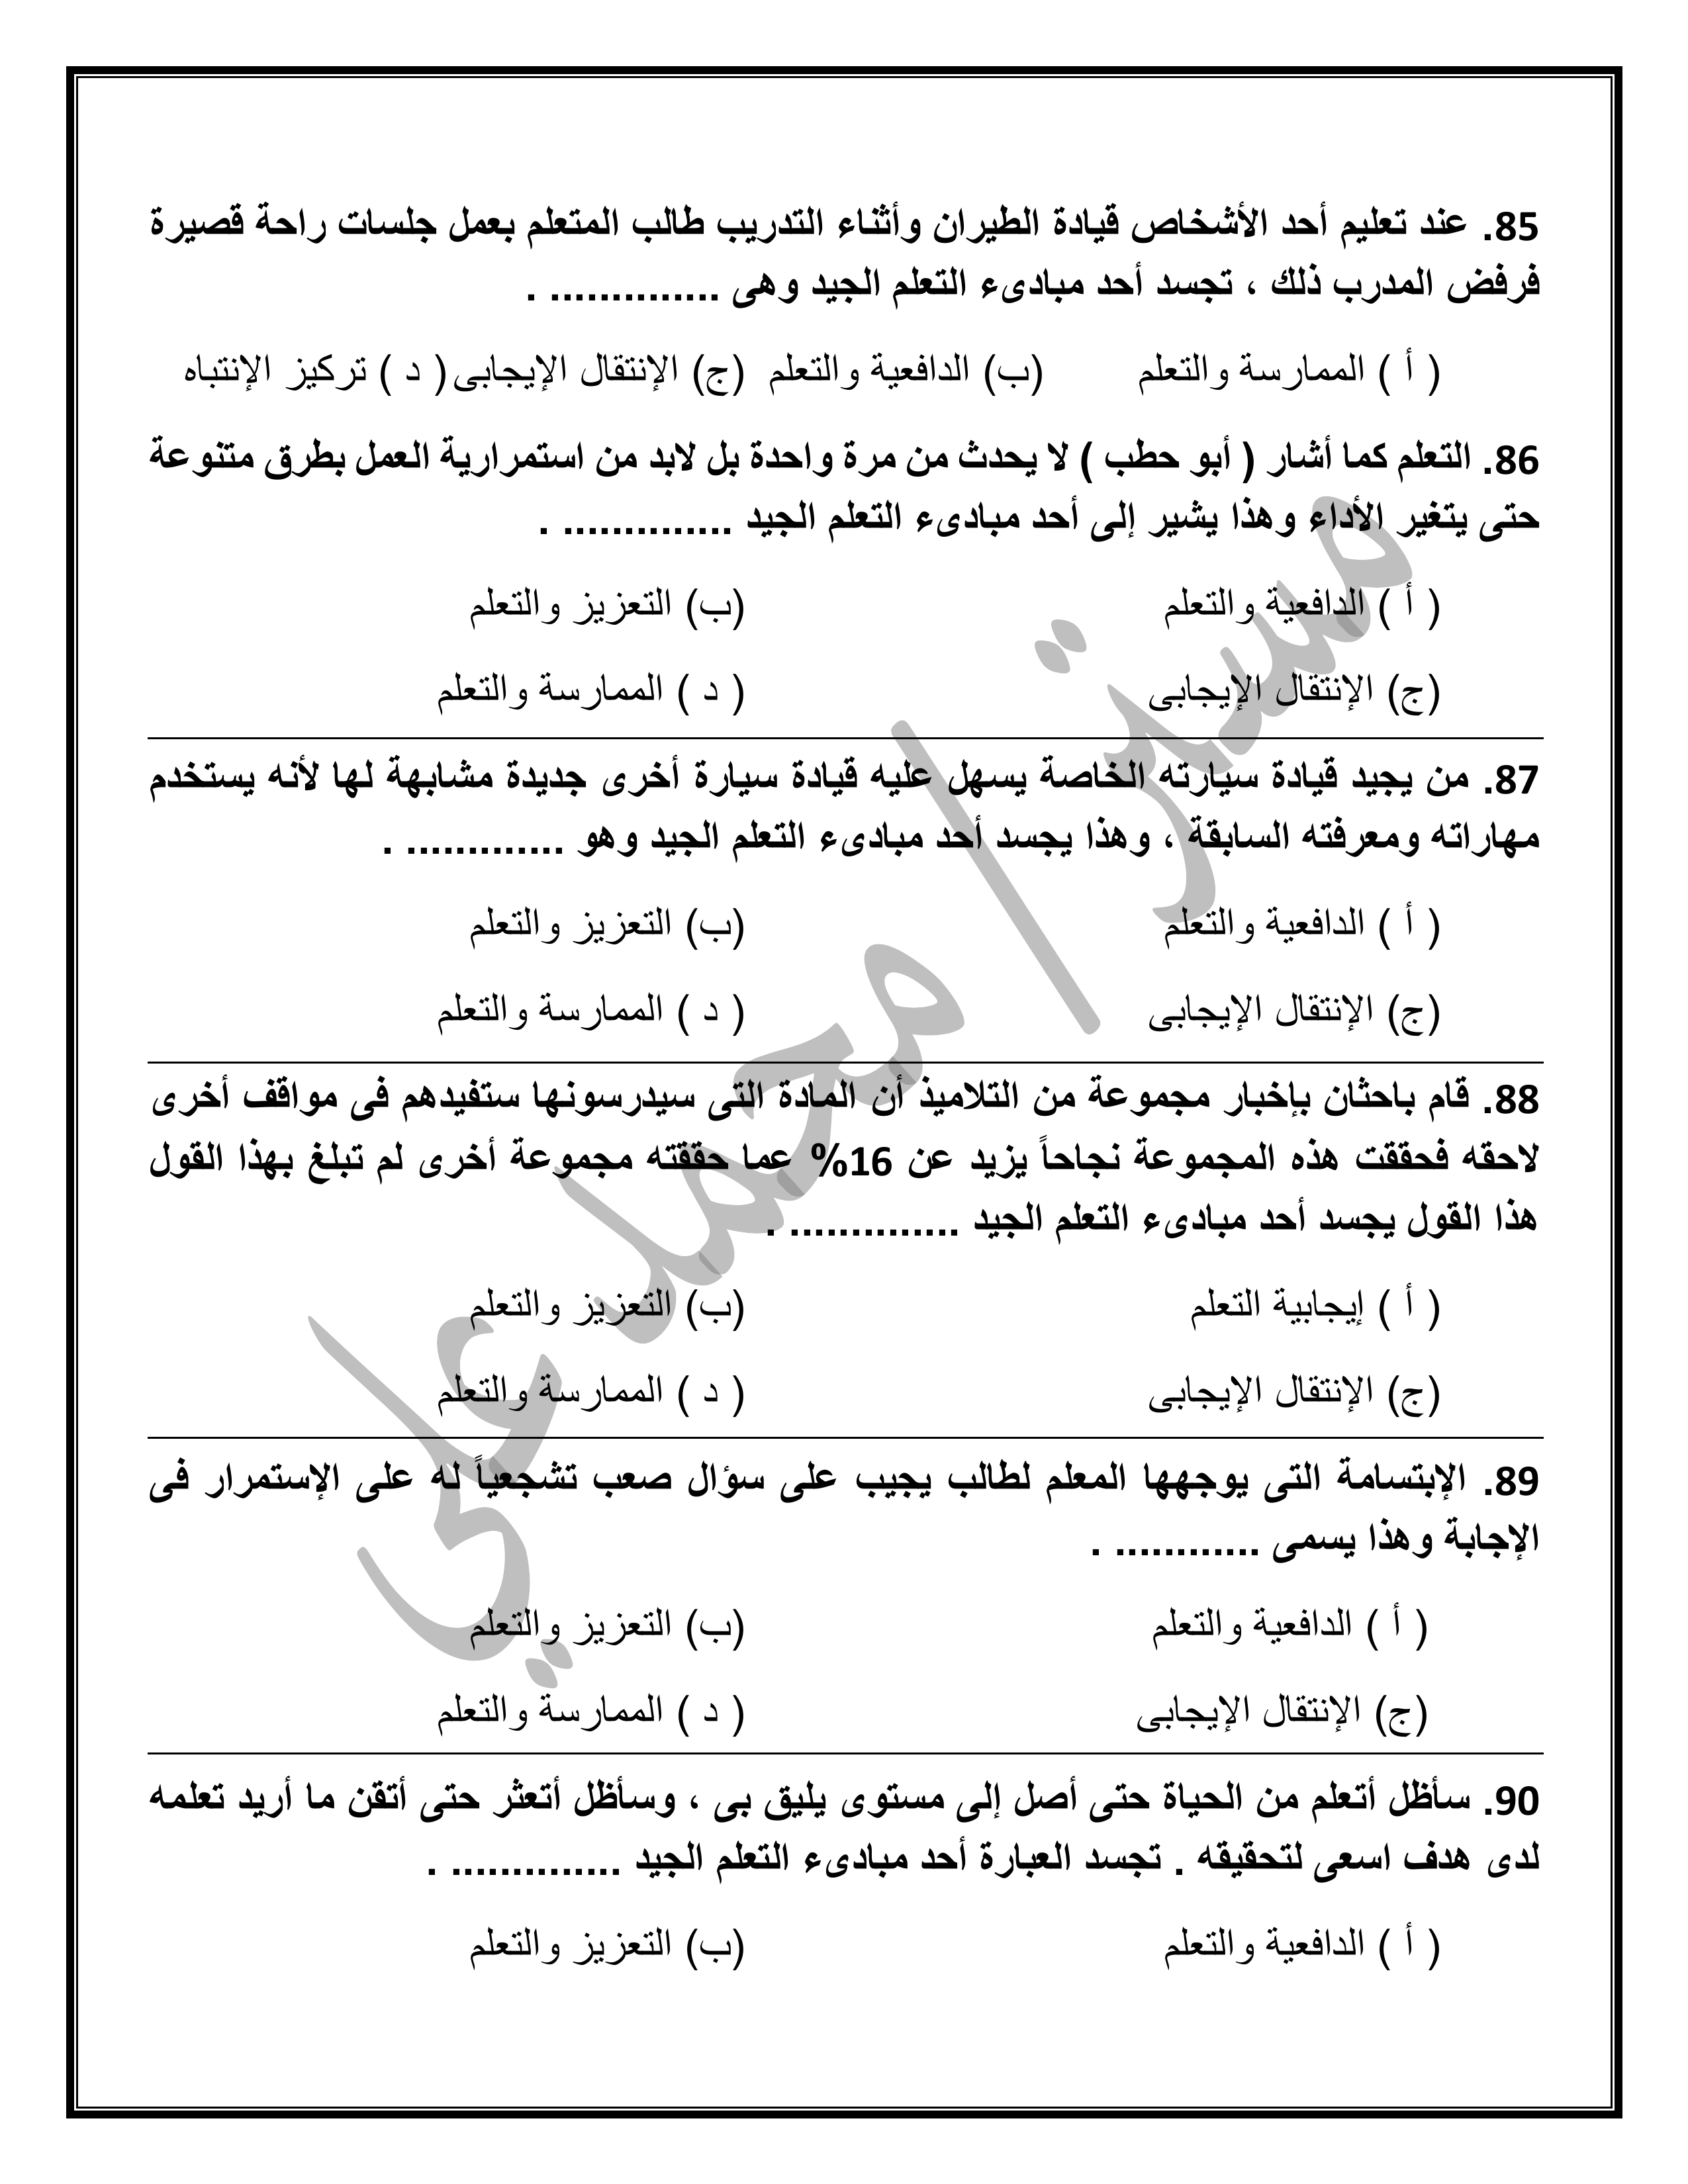 85. عند تعليم أحد الأشخاص قيادة الطيران وأثناء التدريب طالب المتعلم بعمل جلسات راحة قصيرة
فرفض المدرب ذلك ، تجسد أحد مبادىء التعلم الجيد وهى .............. .
( أ ) الممارسة والتعلم (ب) الدافعية والتعلم (ج) الإنتقال الإيجابى ( د ) تركيز الإنتباه
86. التعلم كما أشار ( أبو حطب ) لا يحدث من مرة واحدة بل لابد من استمرارية العمل بطرق متنوعة
حتى يتغير الأداء وهذا يشير إلى أحد مبادىء التعلم الجيد .............. .
( أ ) الدافعية والتعلم (ب) التعزيز والتعلم
(ج) الإنتقال الإيجابى ( د ) الممارسة والتعلم
87. من يجيد قيادة سيارته الخاصة يسهل عليه قيادة سيارة أخرى جديدة مشابهة لها لأنه يستخدم
مهاراته ومعرفته السابقة ، وهذا يجسد أحد مبادىء التعلم الجيد وهو ............. .
( أ ) الدافعية والتعلم (ب) التعزيز والتعلم
(ج) الإنتقال الإيجابى ( د ) الممارسة والتعلم
88. قام باحثان بإخبار مجموعة من التلاميذ أن المادة التى سيدرسونها ستفيدهم فى مواقف أخرى
لاحقه فحققت هذه المجموعة نجاحاً يزيد عن 16% عما حققته مجموعة أخرى لم تبلغ بهذا القول
هذا القول يجسد أحد مبادىء التعلم الجيد .............. .
( أ ) إيجابية التعلم (ب) التعزيز والتعلم
(ج) الإنتقال الإيجابى ( د ) الممارسة والتعلم
89. الإبتسامة التى يوجهها المعلم لطالب يجيب على سؤال صعب تشجعياً له على الإستمرار فى
الإجابة وهذا يسمى ............ .
( أ ) الدافعية والتعلم (ب) التعزيز والتعلم
(ج) الإنتقال الإيجابى ( د ) الممارسة والتعلم
90. سأظل أتعلم من الحياة حتى أصل إلى مستوى يليق بى ، وسأظل أتعثر حتى أتقن ما أريد تعلمه
لدى هدف اسعى لتحقيقه . تجسد العبارة أحد مبادىء التعلم الجيد .............. .
( أ ) الدافعية والتعلم (ب) التعزيز والتعلم
مستر/ محمد علي